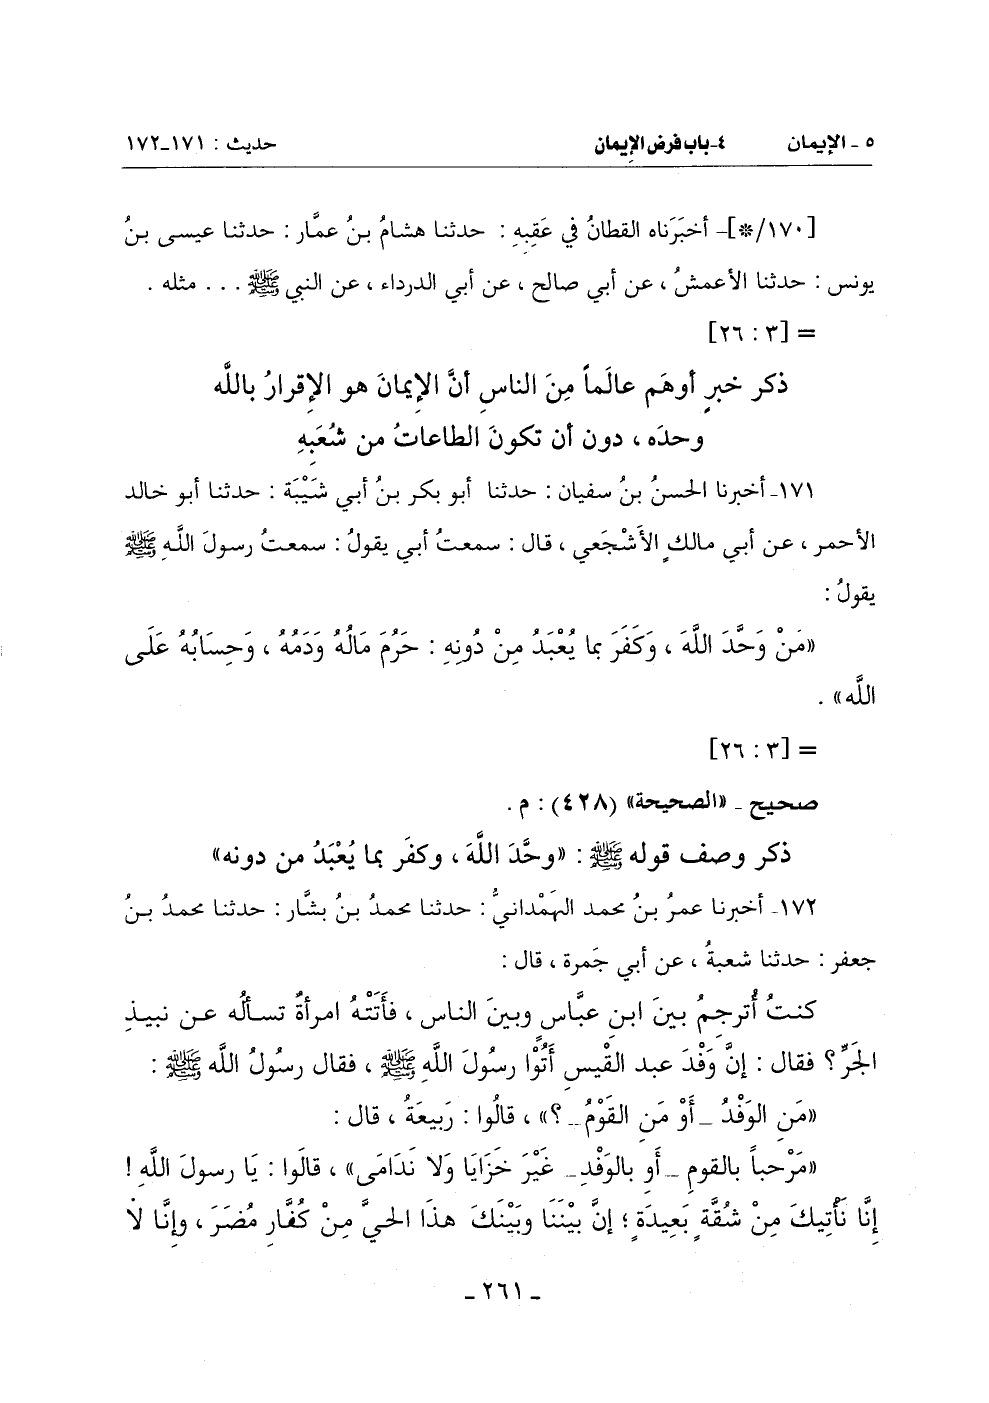 ٥ ـ الإيمان ٤ـ باب فرض الإيمان حديث : ١٧١ـ١٧٢
[١٧٠/*]ـ أخبَرَناه القطانُ في عَقِبِهِ : حدثنا هشامُ بنُ عمَّار : حدثنا عيسى بنُ
يونس : حدثنا الأعمشُ ، عن أبي صالح ، عن أبي الدرداء ، عن النبي ﷺ . . . مثله .
= [٣ : ٢٦]
ذكر خبرٍ أوهَم عالَماً مِنَ الناسِ أنَّ الإيمانَ هو الإقرارُ باللَّه
وحدَه ، دون أن تكونَ الطاعاتُ من شُعَبِهِ
١٧١ـ أخبرنا الحسنُ بنُ سفيان : حدثنا أبو بكر بنُ أبي شَيْبَة : حدثنا أبو خالد
الأحمر ، عن أبي مالكٍ الأَشْجَعي ، قال : سمعتُ أبي يقولُ : سمعتُ رسولَ اللَّهِ ﷺ
يقولُ :
«مَنْ وَحَّدَ اللَّهَ ، وَكَفَرَ بما يُعْبَدُ مِنْ دُونِهِ : حَرُمَ مَالُهُ وَدَمُهُ ، وَحِسَابُهُ عَلَى
اللَّه» .
= [٣ : ٢٦]
صحيح ـ «الصحيحة» (٤٢٨) : م .
ذكر وصف قوله ﷺ : «وحَّدَ اللَّهَ ، وكفَر بما يُعْبَدُ من دونه»
١٧٢ـ أخبرنا عمرُ بنُ محمد الهَمْدانيُّ : حدثنا محمدُ بنُ بشَّار : حدثنا محمدُ بنُ
جعفر : حدثنا شعبةُ ، عن أبي جَمرة ، قال :
كنتُ أُترجمُ بينَ ابنِ عبَّاسٍ وبينَ الناس ، فأَتَتْهُ امرأةٌ تسألُه عن نبيذِ
الجَرِّ ؟ فقال : إنَّ وَفْدَ عبد القَيْسِ أَتَوْا رسولَ اللَّهِ ﷺ ، فقال رسُولُ اللَّه ﷺ :
«مَنِ الوَفْدُ ـ أَوْ مَنِ القَوْمُ ـ ؟» ، قالُوا : رَبِيعَةُ ، قال :
«مَرْحباً بالقومِ ـ أَو بالوَفْدِ ـ غَيْرَ خَزَايَا وَلا نَدَامَى» ، قالَوا : يَا رسولَ اللَّهِ !
إنَّا نَأْتِيكَ مِنْ شُقَّةٍ بَعِيدَةٍ ؛ إنَّ بيْنَنَا وبَيْنَكَ هذَا الحيَّ مِنْ كُفَّارِ مُضَرَ ، وإِنَّا لا
ـ ٢٦١ ـ